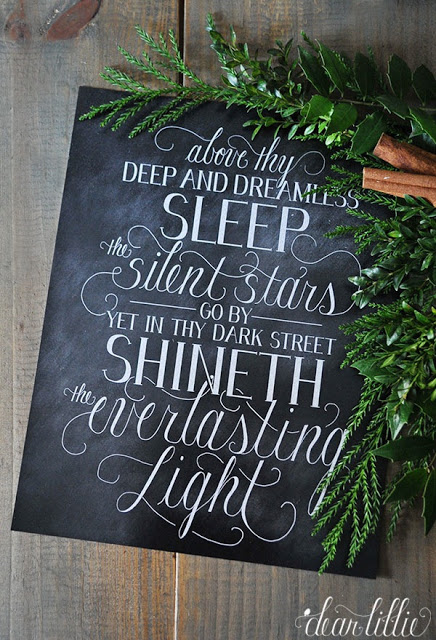 above thy
DEEP AND DREAMLESS
SLEEP
the silent stars
GO BY
YET IN THY DARK STREET
SHINETH
the everlasting
Light
dear lillie